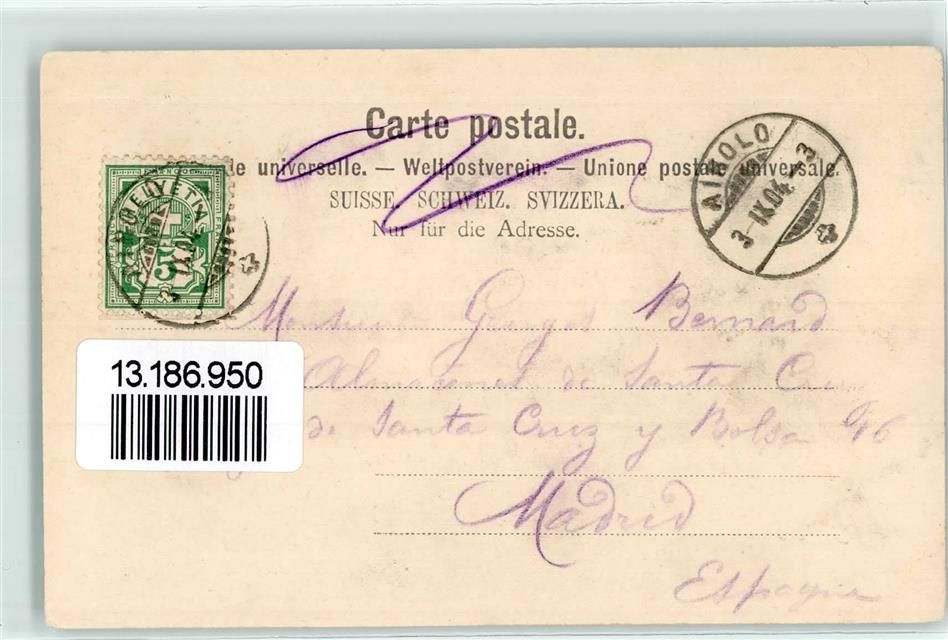 Carte postale.
de universelle. — Weltpostverein. — Unione postale universale.
SUISSE. SCHWEIZ. SVIZZERA.
Nur für die Adresse.
HELVETIA
5
AIROLO
3-IX.04.-3
Monsieur Georges Bernard
Almacenes de Santa Cruz
de Santa Cruz y Bolsa
Madrid
Espagne
13.186.950